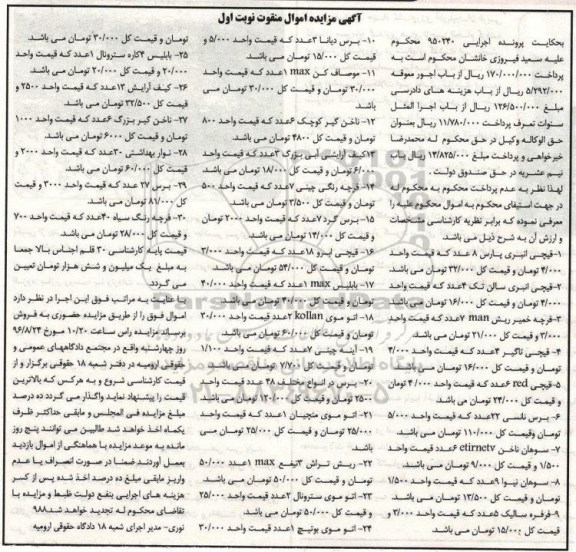 آگهی مزایده اموال منقوت نوبت اول
بحکایت پرونده اجرایی ۹۵۰۲۴۰ محکوم
علیه سعید فیروزی خانشان محکوم است به
پرداخت ۱۷۰/۰۰۰/۰۰۰ ریال از باب اجور معوقه
۵/۲۹۲/۰۰۰ ریال از باب هزینه های دادرسی
مبلغ ۱۲۶/۵۰۰/۰۰۰ ریال از باب اجرا المثل
سنوات تصرف پرداخت ۱۱/۷۸۰/۰۰۰ ریال بعنوان
حق الوکاله وکیل در حق محکوم له محمدرضا
خیرخواهی و پرداخت مبلغ ۱۳/۸۲۵/۰۰۰ ریال باب
نیم عشریه در حق صندوق دولت .
لهذا نظر به عدم پرداخت محکوم به محکوم له
در جهت استیفای محکوم به اموال محکوم علیه را
معرفی نموده که برابر نظریه کارشناسی مشخصات
و ارزش آن به شرح ذیل می باشد
۱-قیچی انبری پارس ۸ عدد که قیمت واحد
۴/۰۰۰ تومان و قیمت کل ۳۲/۰۰۰ تومان می باشد
۲-قیچی انبری سالن تک ۴عدد که قیمت واحد
۴/۰۰۰ تومان و قیمت کل ۱۶/۰۰۰ تومان می باشد
۳-فرچه خمیر ریش man ۷عدد که قیمت واحد
۳/۰۰۰ و قیمت کل ۲۱/۰۰۰ تومان می باشد.
۴- قیچی ناگیر ۴عدد که قیمت واحد ۴/۰۰۰
تومان و قیمت کل ۱۶/۰۰۰ تومان می باشد.
۵-قیچی red ۶عدد که قیمت واحد ۴/۰۰۰ تومان
و قیمت کل ۲۴/۰۰۰ تومان می باشد.
۶- برس نانسی ۲۲عدد که قیمت واحد ۵/۰۰۰
تومان وقیمت کل ۱۱۰/۰۰۰ تومان می باشد.
۷- سوهان ناخن etirnetv ۶عدد قیمت واحد
۱/۵۰۰ و قیمت کل ۹/۰۰۰ تومان می باشد.
۸- سوهان نیوا ۹عدد که قیمت واحد ۱/۵۰۰
تومان و قیمت کل ۱۳/۵۰۰ تومان می باشد.
۹- فرفره سالیک ۵عدد که قیمت واحد ۳/۰۰۰ و
قیمت کل ۱۵/۰۰۰ تومان می باشد.
۱۰- برس دیانا ۳عدد که قیمت واحد ۵/۰۰۰ و
قیمت کل ۱۵/۰۰۰ تومان می باشد.
۱۱- موصاف کن max ۱عدد که قیمت واحد
۳۰/۰۰۰ تومان و قیمت کل ۳۰/۰۰۰ تومان می
باشد.
۱۲- ناخن گیر کوچک ۶عدد که قیمت واحد ۸۰۰
تومان و قیمت کل ۴۸۰۰ تومان می باشد.
۱۳- کیف آرایشی آبی بزرگ ۳عدد که قیمت واحد
۶/۰۰۰ تومان و قیمت کل ۱۸/۰۰۰ تومان می باشد.
۱۴- فرچه رنگی چینی ۷عدد که قیمت واحد ۵۰۰
و قیمت کل ۳/۵۰۰ تومان می باشد.
۱۵- برس گرد ۷عدد که قیمت واحد ۲۰۰۰ تومان
و قیمت کل ۱۴/۰۰۰ تومان می باشد.
۱۶- قیچی ابرو ۱۸عدد که قیمت واحد ۳/۰۰۰
تومان و قیمت کل ۵۴/۰۰۰ تومان می باشد.
۱۷- بابلیس max ۱عدد که قیمت واحد ۴۰/۰۰۰
تومان و قیمت کل ۴۰/۰۰۰ تومان می باشد.
۱۸- اتو موی kollan ۲عدد قیمت واحد ۳۰/۰۰۰
تومان و قیمت کل ۶۰/۰۰۰ تومان می باشد.
۱۹- آینه چینی ۷عدد که قیمت واحد ۱/۱۰۰
تومان و قیمت کل ۷/۷۰۰ تومان می باشد.
۲۰- برس در انواع مختلف ۴۸ عدد قیمت واحد
۲۵۰۰ تومان و قیمت کل ۱۲۰/۰۰۰ تومان می باشد.
۲۱- اتو موی منچیان ۱عدد که قیمت واحد
۲۵/۰۰۰ تومان و قیمت کل ۲۵/۰۰۰ تومان می
باشد.
۲۲- ریش تراش ۳تیغ max ۱عدد ۵۰/۰۰۰
تومان و قیمت کل ۵۰/۰۰۰ تومان می باشد.
۲۳- اتو موی سترونال ۲عدد قیمت واحد ۲۵/۰۰۰
و قیمت کل ۵۰/۰۰۰ تومان می باشد.
۲۴- اتو موی بوتیچ ۱عدد قیمت واحد ۳۰/۰۰۰
تومان و قیمت کل ۳۰/۰۰۰ تومان می باشد.
۲۵- بابلیس ۴کاره سترونال ۱عدد که قیمت واحد
۲۰/۰۰۰ و قیمت کل ۲۰/۰۰۰ تومان می باشد.
۲۶- کیف آرایش ۱۳عدد که قیمت واحد ۲۵۰۰ و
قیمت کل ۳۲/۵۰۰ تومان می باشد.
۲۷- ناخن گیر بزرگ ۶عدد که قیمت واحد ۱۰۰۰
تومان و قیمت کل ۶۰۰۰ تومان می باشد.
۲۸- نوار بهداشتی ۳۰عدد که قیمت واحد ۲۰۰۰ و
قیمت کل ۶۰/۰۰۰ تومان می باشد.
۲۹- برس ۲۷ عدد که قیمت واحد ۳۰۰۰ و قیمت
کل ۸۱/۰۰۰ تومان می باشد.
۳۰- فرچه رنگ سیاه ۴۰عدد که قیمت واحد ۷۰۰
و قیمت کل ۲۸/۰۰۰ تومان می باشد.
قیمت پایه کارشناسی ۳۰ قلم اجناس بالا جمعا
به مبلغ یک میلیون و شش هزار تومان تعیین
می گردد.
با عنایت به مراتب فوق این اجرا در نظر دارد
اموال فوق را از طریق مزایده حضوری به فروش
برساند مزایده راس ساعت ۱۰/۲۰ مورخ ۹۶/۸/۲۴
روز چهارشنبه واقع در مجتمع دادگاههای عمومی و
حقوقی ارومیه در دفتر شعبه ۱۸ حقوقی برگزار و از
قیمت کارشناسی شروع و به هرکس که بالاترین
قیمت را پیشنهاد نماید واگذار می گردد ده درصد
مبلغ مزایده فی المجلس و مابقی حداکثر ظرف
یکماه اخذ خواهد شد طالبین می توانند پنج روز
مانده به موعد مزایده با هماهنگی از اموال بازدید
بعمل آورند.ضمنا در صورت انصراف یا عدم
واریز مابقی مبلغ ده درصد اخذ شده پس از کسر
هزینه های اجرایی بنفع دولت ظبط و مزایده با
تقاضای محکوم له تجدید خواهد شد.۹۸۸
نوری- مدیر اجرای شعبه ۱۸ دادگاه حقوقی ارومیه